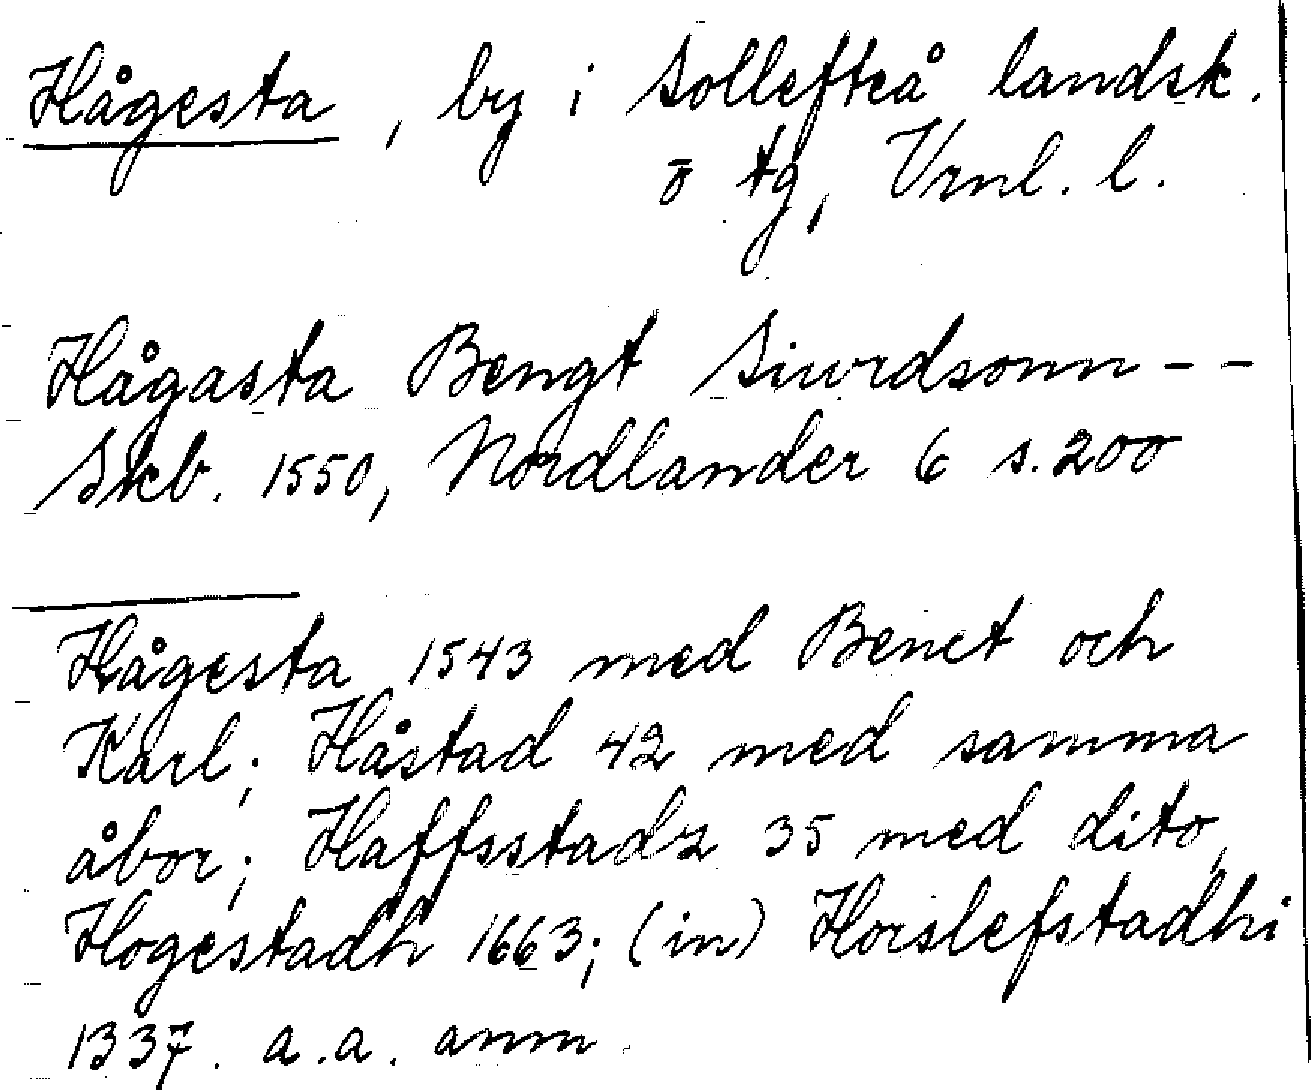 Hågesta, by i Sollefteå landsk.
o tg, Vrnl. l.
Hågasta Bengt Siurdsonn - -
Skb. 1550, Nordlander 6 s. 200
Hågesta 1543 med Benct och
Karl; Håstad 42 med samma
åbor; Haffsstadz 35 med dito,
Hogestadh 1663; (in) Horslefstadhi
1337. a.a. anm.